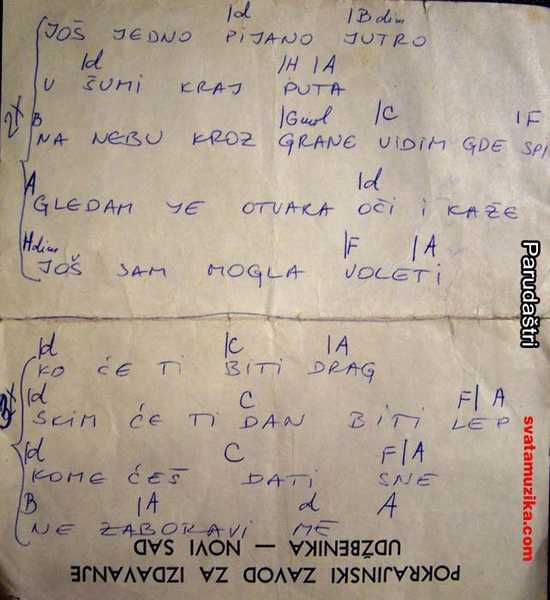 |d |Bdim
JOŠ JEDNO PIJANO JUTRO
|d |H |A
U ŠUMI KRAJ PUTA
2x
B |Gmol |C |F
NA NEBU KROZ GRANE VIDIM GDE SPI
A |d
GLEDAM JE OTVARA OČI I KAŽE
Hdim |F |A
JOŠ SAM MOGLA VOLETI
|d |C |A
KO ĆE TI BITI DRAG
3x
|d C F| A
SKIM ĆE TI DAN BITI LEP
|d C F|A
KOME ĆEŠ DATI SNE
B |A d A
NE ZABORAVI ME
POKRAJINSKI ZAVOD ZA IZDAVANJE
UDŽBENIKA — NOVI SAD
Parudaštri
svatamuzika.com